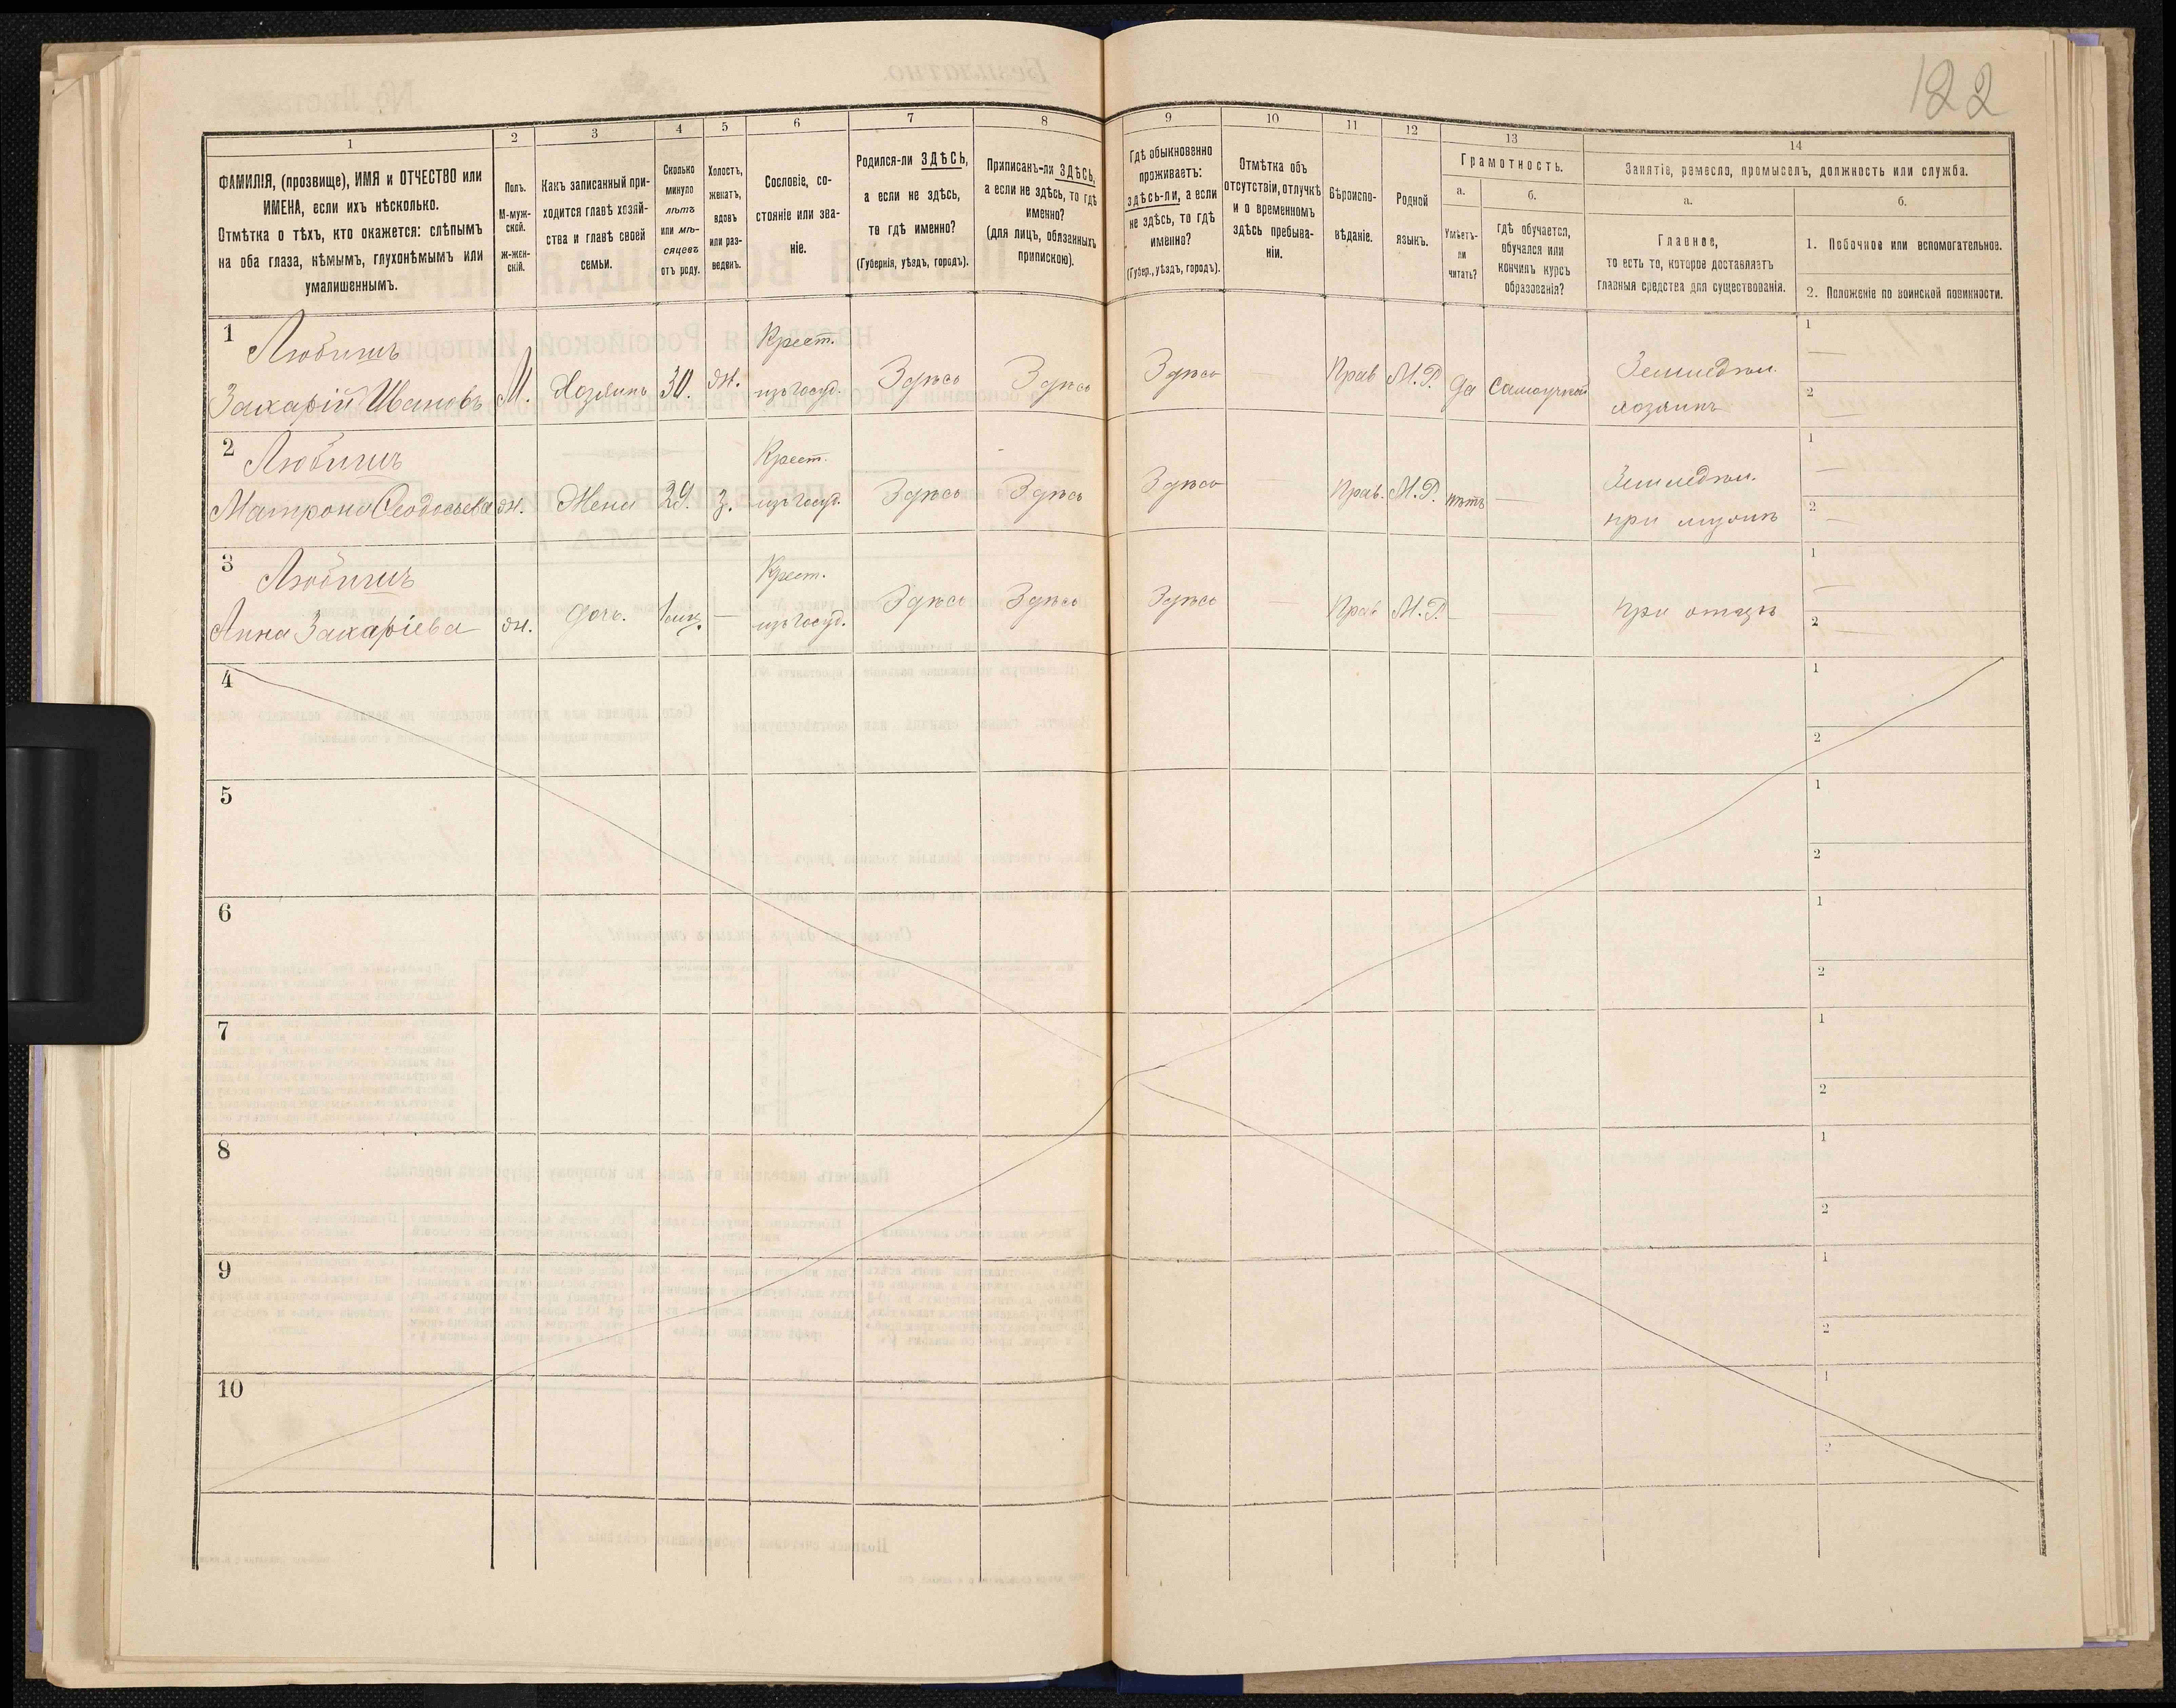 122
1
2
3
4
5
6
7
8
9
10
11
12
13
14
ФАМИЛІЯ, (прозвище), ИМЯ и ОТЧЕСТВО или
ИМЕНА, если ихъ нѣсколько.
Отмѣтка о тѣхъ, кто окажется: слѣпымъ
на оба глаза, нѣмымъ, глухонѣмымъ или
умалишеннымъ.
Полъ.
М-муж-
ской.
Ж-жен-
скій.
Какъ записанный при-
ходится главѣ хозяй-
ства и главѣ своей
семьи.
Сколько
минуло
лѣтъ
или мѣ-
сяцевъ
отъ роду.
Холостъ,
женатъ,
вдовъ
или раз-
веденъ.
Сословіе, со-
стояніе или зва-
ніе.
Родился-ли ЗДѢСЬ,
а если не здѣсь,
то гдѣ именно?
(Губернія, уѣздъ, городъ).
Приписанъ-ли ЗДѢСЬ,
а если не здѣсь, то гдѣ
именно?
(для лицъ, обязанныхъ
припискою).
Гдѣ обыкновенно
проживаетъ:
здѣсь-ли, а если
не здѣсь, то гдѣ
именно?
(Губер., уѣздъ, городъ).
Отмѣтка объ
отсутствіи, отлучкѣ
и о временномъ
здѣсь пребыва-
ніи.
Вѣроиспо-
вѣданіе.
Родной
языкъ.
Грамотность.
а.
Умѣетъ-
ли
читать?
б.
гдѣ обучается,
обучался или
кончилъ курсъ
образованія?
Занятіе, ремесло, промыселъ, должность или служба.
а.
Главное,
то есть то, которое доставляетъ
главныя средства для существованія.
б.
1. Побочное или вспомогательное.
2. Положеніе по воинской повинности.
1
Любичъ
Захарій Ивановъ
М.
Хозяинъ
30.
ж.
Крест.
изъ госуд.
Здѣсь
Здѣсь
Здѣсь
—
Прав
М.Р.
да
Самоучкой
Земледѣл.
хозяинъ
1
—
2
—
2
Любичъ
Матрона Ѳеодосьева
ж.
Жена
29.
з.
Крест.
изъ госуд.
Здѣсь
Здѣсь
Здѣсь
—
Прав.
М.Р.
нѣтъ
—
Земледѣл.
при мужѣ
1
—
2
—
3
Любичъ
Анна Захаріева
ж.
дочь.
—
Крест.
изъ госуд.
Здѣсь
Здѣсь
Здѣсь
—
Прав
М.Р.
—
—
при отцѣ
1
—
2
—
4
1
2
5
1
2
6
1
2
7
1
2
8
1
2
9
1
2
10
1
2